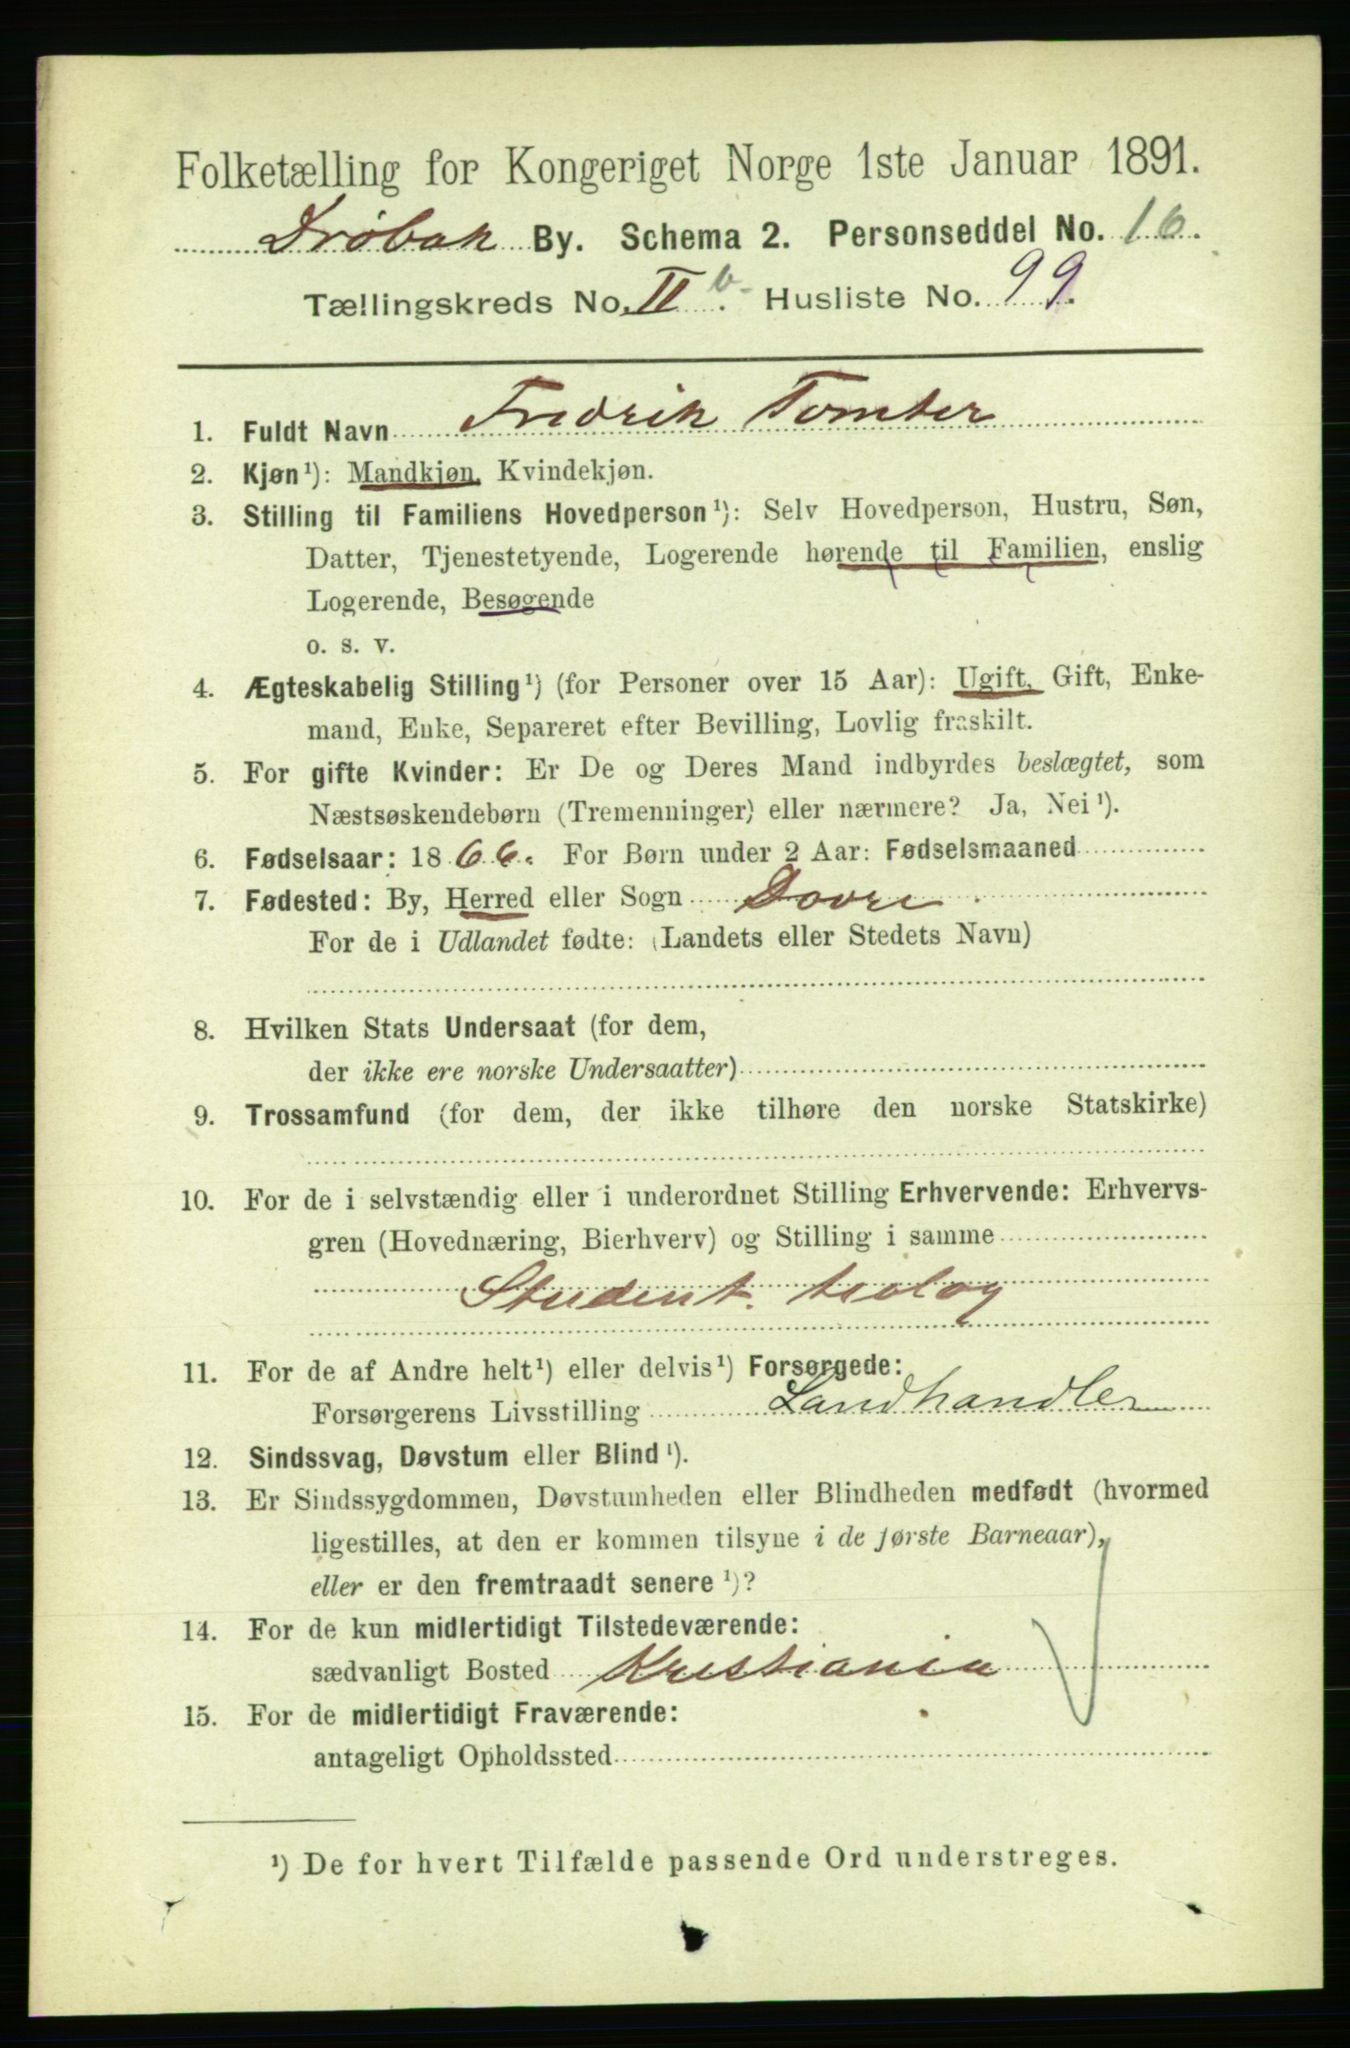 Folketælling for Kongeriget Norge 1ste Januar 1891.
Drøbak By. Schema 2. Personseddel No. 16.
Tællingskreds No. II b. Husliste No. 99.
1. Fuldt Navn Fredrik Tomter
2. Kjøn¹): Mandkjøn, Kvindekjøn.
3. Stilling til Familiens Hovedperson¹): Selv Hovedperson, Hustru, Søn,
Datter, Tjenestetyende, Logerende hørende til Familien, enslig
Logerende, Besøgende
o. s. v.
4. Ægteskabelig Stilling¹) (for Personer over 15 Aar): Ugift, Gift, Enke-
mand, Enke, Separeret efter Bevilling, Lovlig fraskilt.
5. For gifte Kvinder: Er De og Deres Mand indbyrdes beslægtet, som
Næstsøskendebørn (Tremenninger) eller nærmere? Ja, Nei¹).
6. Fødselsaar: 1866. For Børn under 2 Aar: Fødselsmaaned
7. Fødested: By, Herred eller Sogn Dovre
For de i Udlandet fødte: (Landets eller Stedets Navn)
8. Hvilken Stats Undersaat (for dem,
der ikke ere norske Undersaatter)
9. Trossamfund (for dem, der ikke tilhøre den norske Statskirke)
10. For de i selvstændig eller i underordnet Stilling Erhvervende: Erhvervs-
gren (Hovednæring, Bierhverv) og Stilling i samme
Student. teolog
11. For de af Andre helt¹) eller delvis¹) Forsørgede:
Forsørgerens Livsstilling Landhandler
12. Sindssvag, Døvstum eller Blind¹).
13. Er Sindssygdommen, Døvstumheden eller Blindheden medfødt (hvormed
ligestilles, at den er kommen tilsyne i de første Barneaar),
eller er den fremtraadt senere¹)?
14. For de kun midlertidigt Tilstedeværende:
sædvanligt Bosted Kristiania
15. For de midlertidigt Fraværende:
antageligt Opholdssted
¹) De for hvert Tilfælde passende Ord understreges.